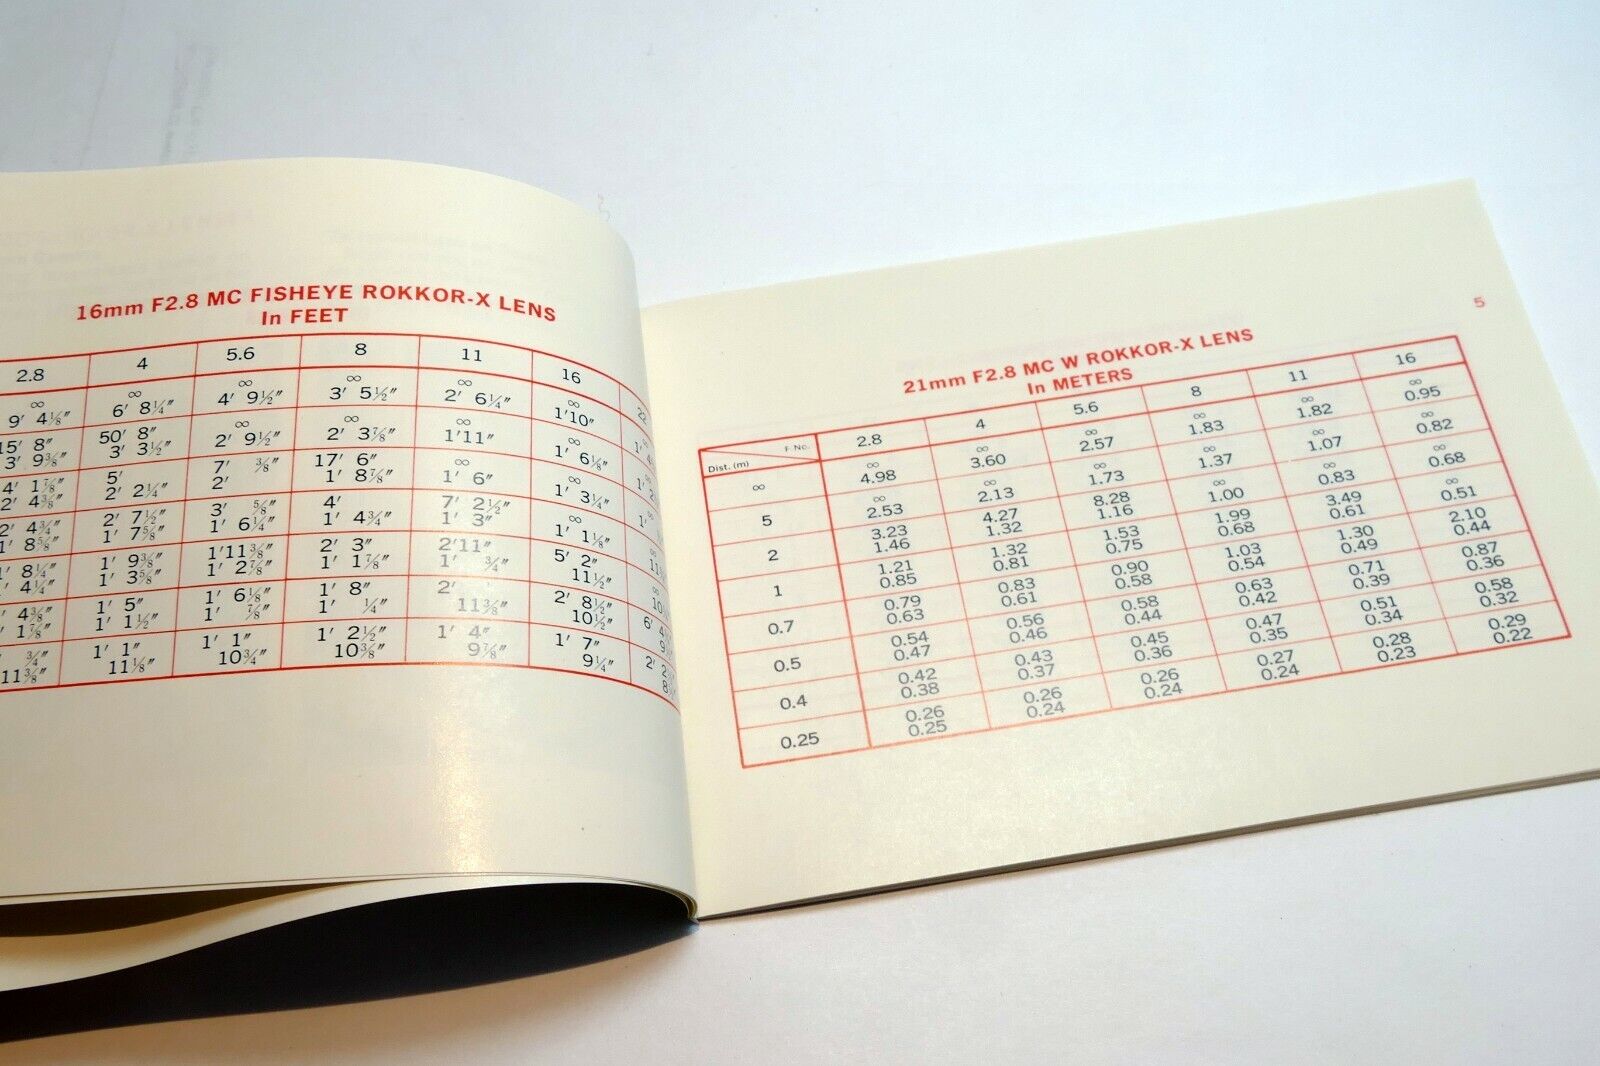 16mm F2.8 MC FISHEYE ROKKOR-X LENS
In FEET
2.8 4 5.6 8 11 16 22
∞ ∞ ∞ ∞ ∞ ∞ ∞
9' 4½" 6' 8¼" 4' 9½" 3' 5½" 2' 6¼" 1'10" 1'
15' 8" 50' 8" ∞ ∞ ∞ ∞
3' 9⅜" 3' 3½" 2' 9½" 2' 3⅞" 1'11" 1' 6⅛" 1'
4' 1⅞" 5' 7' ⅜" 17' 6" ∞ ∞
2' 4⅜" 2' 2¼" 2' 1' 8⅞" 1' 6" 1' 3¼" 1'
2' 4¾" 2' 7½" 3' ⅝" 4' 7' 2½" ∞ ∞
1' 8⅝" 1' 7⅝" 1' 6¼" 1' 4¾" 1' 3" 1' 1⅛"
1' 8¼" 1' 9⅜" 1'11⅜" 2' 3" 2'11" 5' 2" ∞
4¼" 1' 3⅝" 1' 2⅞" 1' 1⅞" 1' ¾" 11½"
' 4⅜" 1' 5" 1' 6⅛" 1' 8" 2' 2' 8½" 6' 4
' 1⅞" 1' 1½" 1' ⅞" 1' ¼" 11⅜" 10½" 9
¾" 1' 1" 1' 1" 1' 2½" 1' 4" 1' 7" 2' 2
11⅜" 11⅛" 10¾" 10⅜" 9⅞" 9¼" 8
5
21mm F2.8 MC W ROKKOR-X LENS
In METERS
F No. 2.8 4 5.6 8 11 16
Dist. (m)
∞ ∞ ∞ ∞ ∞ ∞
∞ 4.98 3.60 2.57 1.83 1.82 0.95
∞ ∞ ∞ ∞ ∞ ∞
5 2.53 2.13 1.73 1.37 1.07 0.82
3.23 4.27 8.28 ∞ ∞ ∞
2 1.46 1.32 1.16 1.00 0.83 0.68
1.21 1.32 1.53 1.99 3.49 ∞
1 0.85 0.81 0.75 0.68 0.61 0.51
0.79 0.83 0.90 1.03 1.30 2.10
0.7 0.63 0.61 0.58 0.54 0.49 0.44
0.54 0.56 0.58 0.63 0.71 0.87
0.5 0.47 0.46 0.44 0.42 0.39 0.36
0.42 0.43 0.45 0.47 0.51 0.58
0.4 0.38 0.37 0.36 0.35 0.34 0.32
0.26 0.26 0.26 0.27 0.28 0.29
0.25 0.25 0.24 0.24 0.24 0.23 0.22